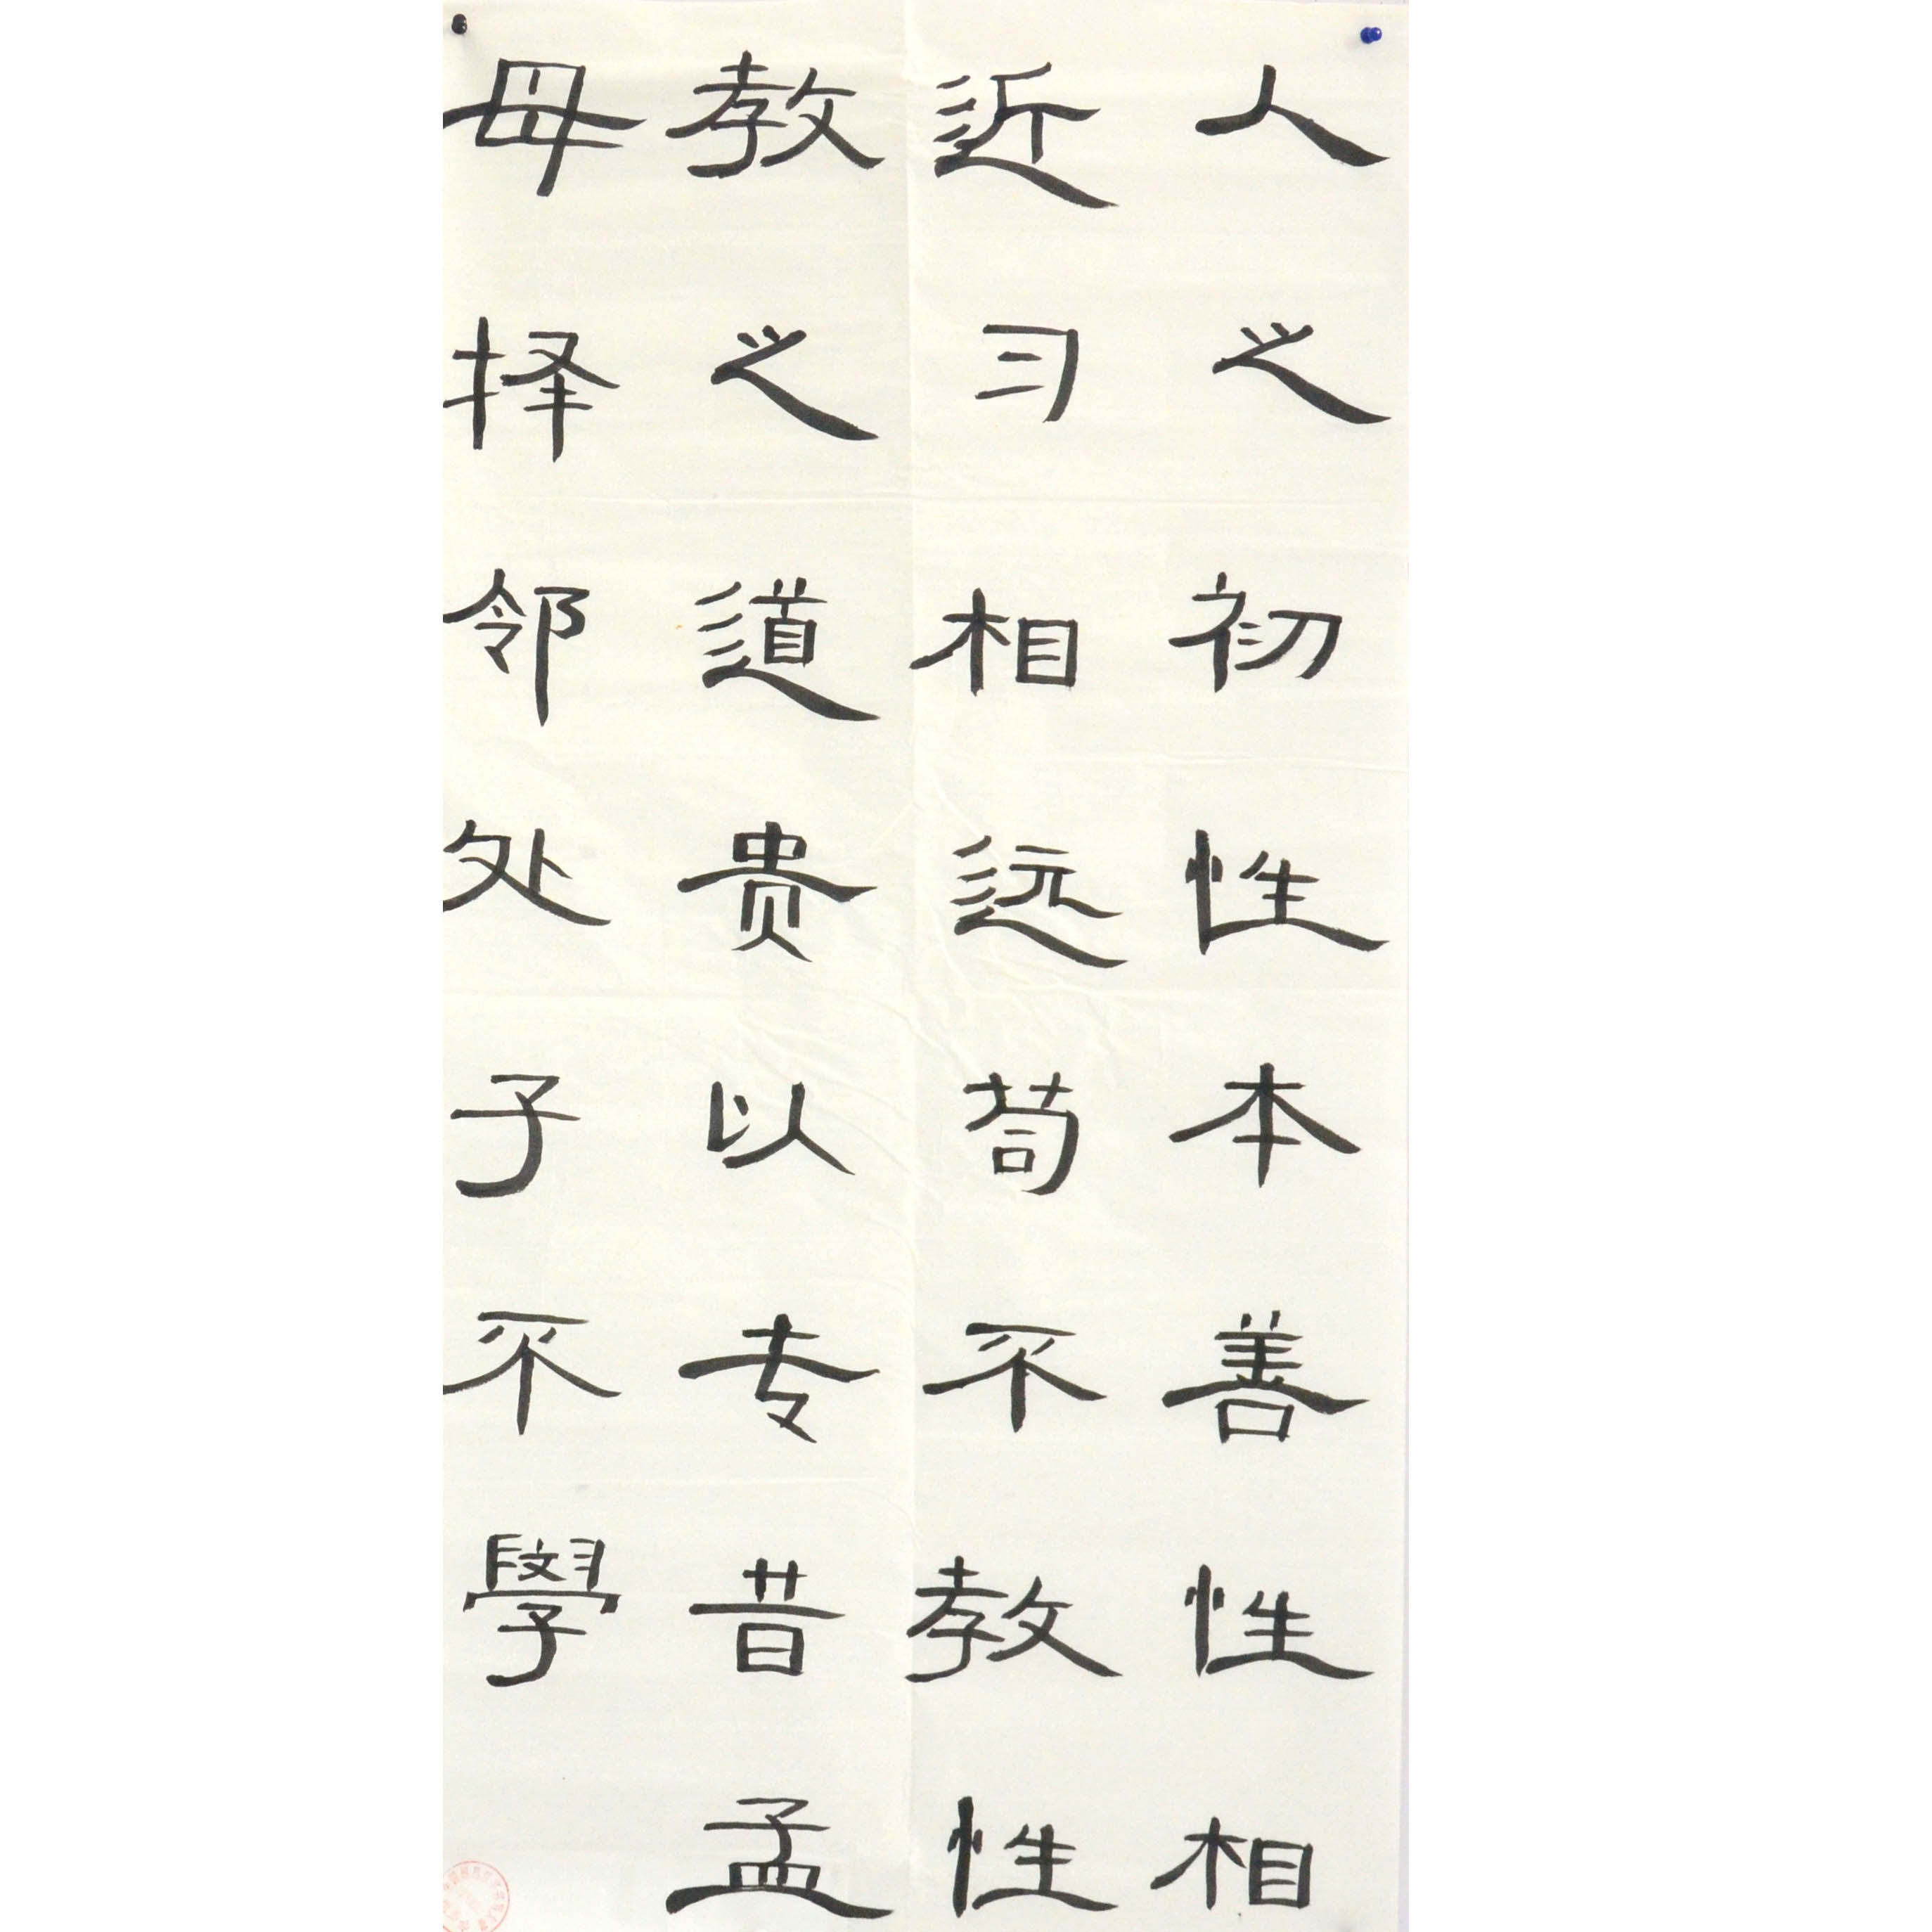 人之初性本善性相
近习相远苟不教性
教之道贵以专昔孟
母择邻处子不學